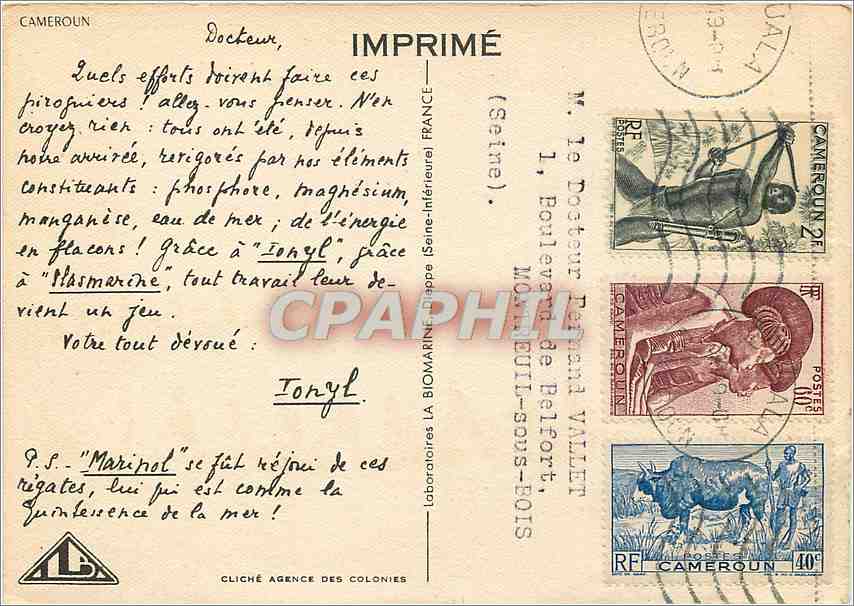 CAMEROUN
Docteur,
IMPRIMÉ
Quels efforts doivent faire ces
piroguiers ! allez-vous penser. N'en
croyez rien : tous ont été, depuis
notre arrivée, revigorés par nos éléments
constituants : phosphore, magnésium,
manganèse, eau de mer ; de l'énergie
en flacons ! Grâce à "Ionyl", grâce
à "Plasmarine", tout travail leur de-
vient un jeu.
Votre tout dévoué :
Ionyl.
P.S.- "Marinol" se fût réjoui de ces
régates, lui qui est comme la
Quintessence de la mer !
CLICHÉ AGENCE DES COLONIES
Laboratoires LA BIOMARINE, Dieppe (Seine-Inférieure) FRANCE
M. le Docteur VALLET
1, Boulevard de Belfort,
MONTREUIL-sous-BOIS
(Seine).
CPAPHIL
RF
POSTES
CAMEROUN 2F
CAMEROUN
POSTES
60c
RF
POSTES
CAMEROUN
40c
UALA